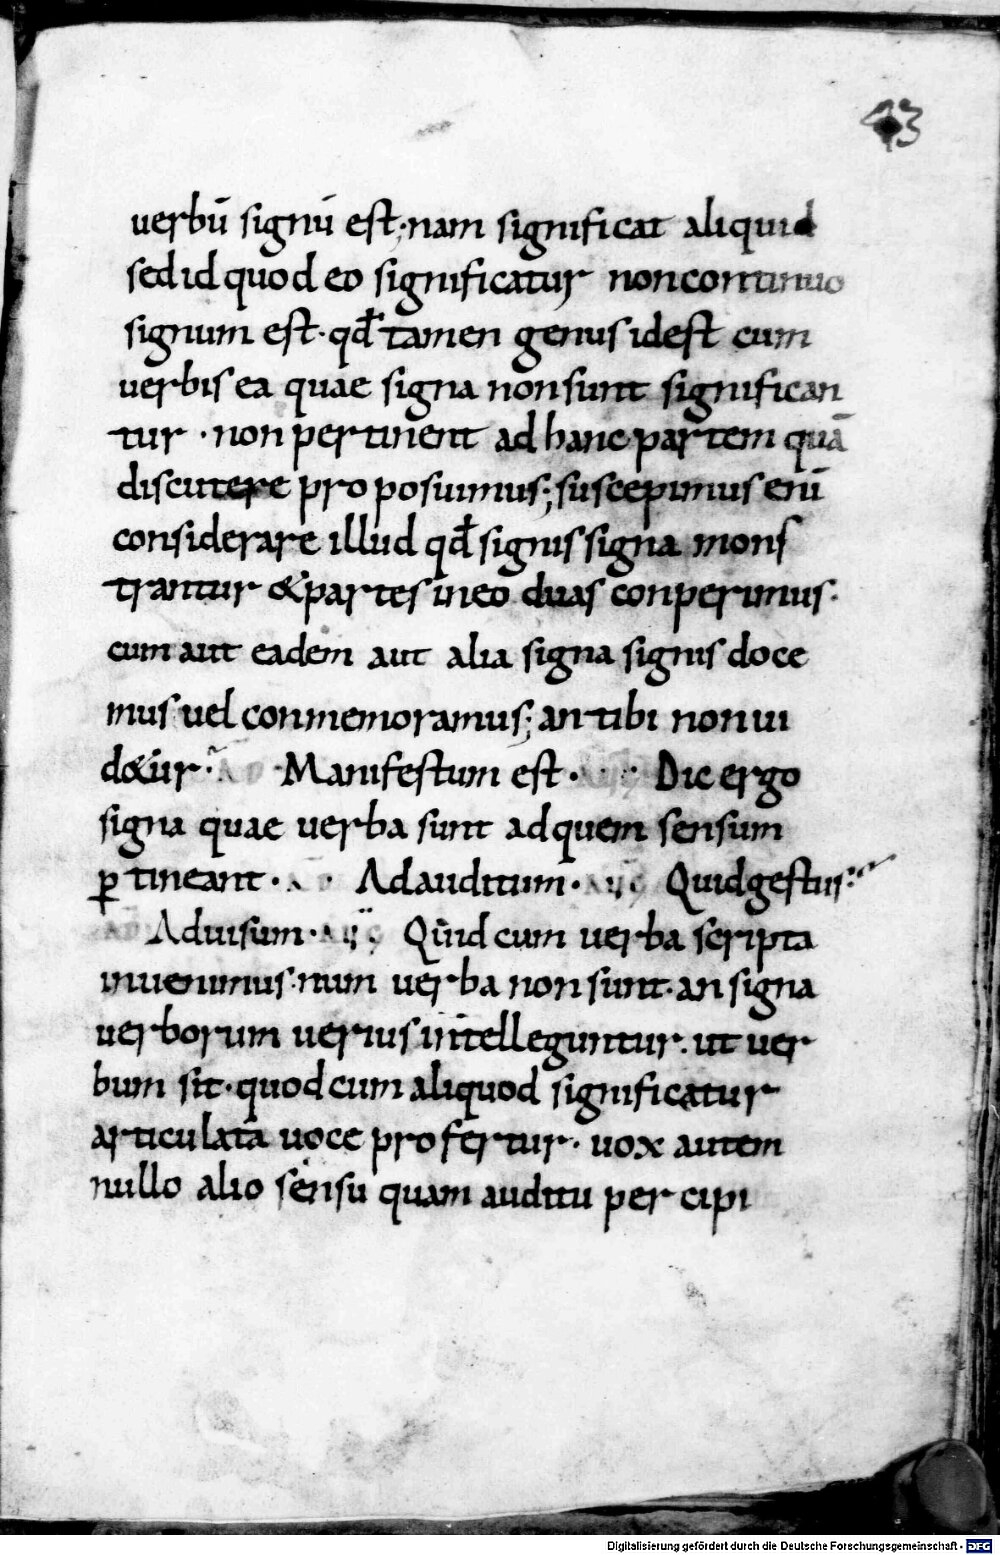 43
uerbū signū est; nam significat aliquid
sed id quod eo significatur non continuo
signum est. qđ tamen genus id est cum
uerbis ea quae signa non sunt significan
tur · non pertinent ad hanc partem quā
discutere proposuimus; suscepimus enī
considerare illud qđ signis signa mons
trantur & partes in eo duas conperimus·
cum aut eadem aut alia signa signis doce
mus uel conmemoramus; an tibi non ui
d&ur· Manifestum est · Dic ergo
signa quae uerba sunt ad quem sensum
ꝑtineant · Ad auditum · Quid gestus
Ad uisum · Quid cum uerba scripta
inuenimus · num uerba non sunt · an signa
uerborum uerius intelleguntur · ut uer
bum sit · quod cum aliquod significatur
articulata uoce profertur · uox autem
nullo alio sensu quam auditu percipi
Digitalisierung gefördert durch die Deutsche Forschungsgemeinschaft - DFG